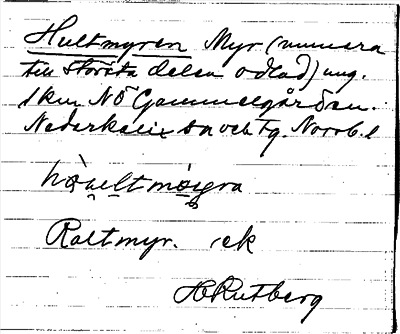 Hultmyren Myr (numera
till största delen odlad) ung.
1 km NÖ Gammelgården.
Nederkalix sn och tg. Norrb. l
Raltmyr. ck
H Rutberg